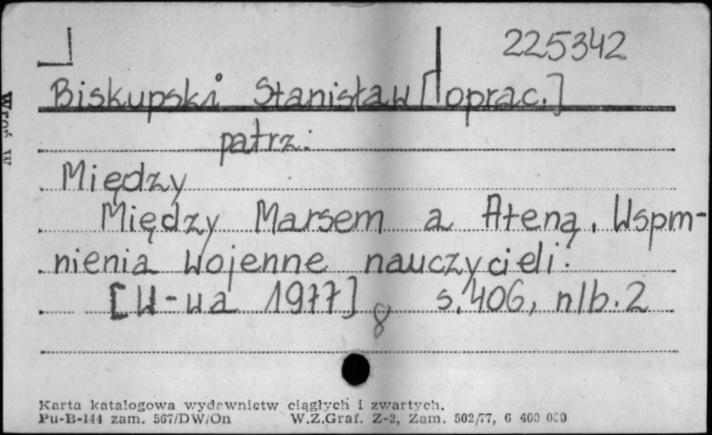 225342
Biskupski Stanisław [oprac.]
patrz:
Między
Między Marsem a Ateną. Wspm-
nienia wojenne nauczycieli.
[W-wa 1977] 8 s. 406, nlb. 2
Karta katalogowa wydawnictw ciągłych i zwartych.
Pu-B-144 zam. 567/DW/On W.Z.Graf. Z-2, Zam. 502/77, 6 400 000